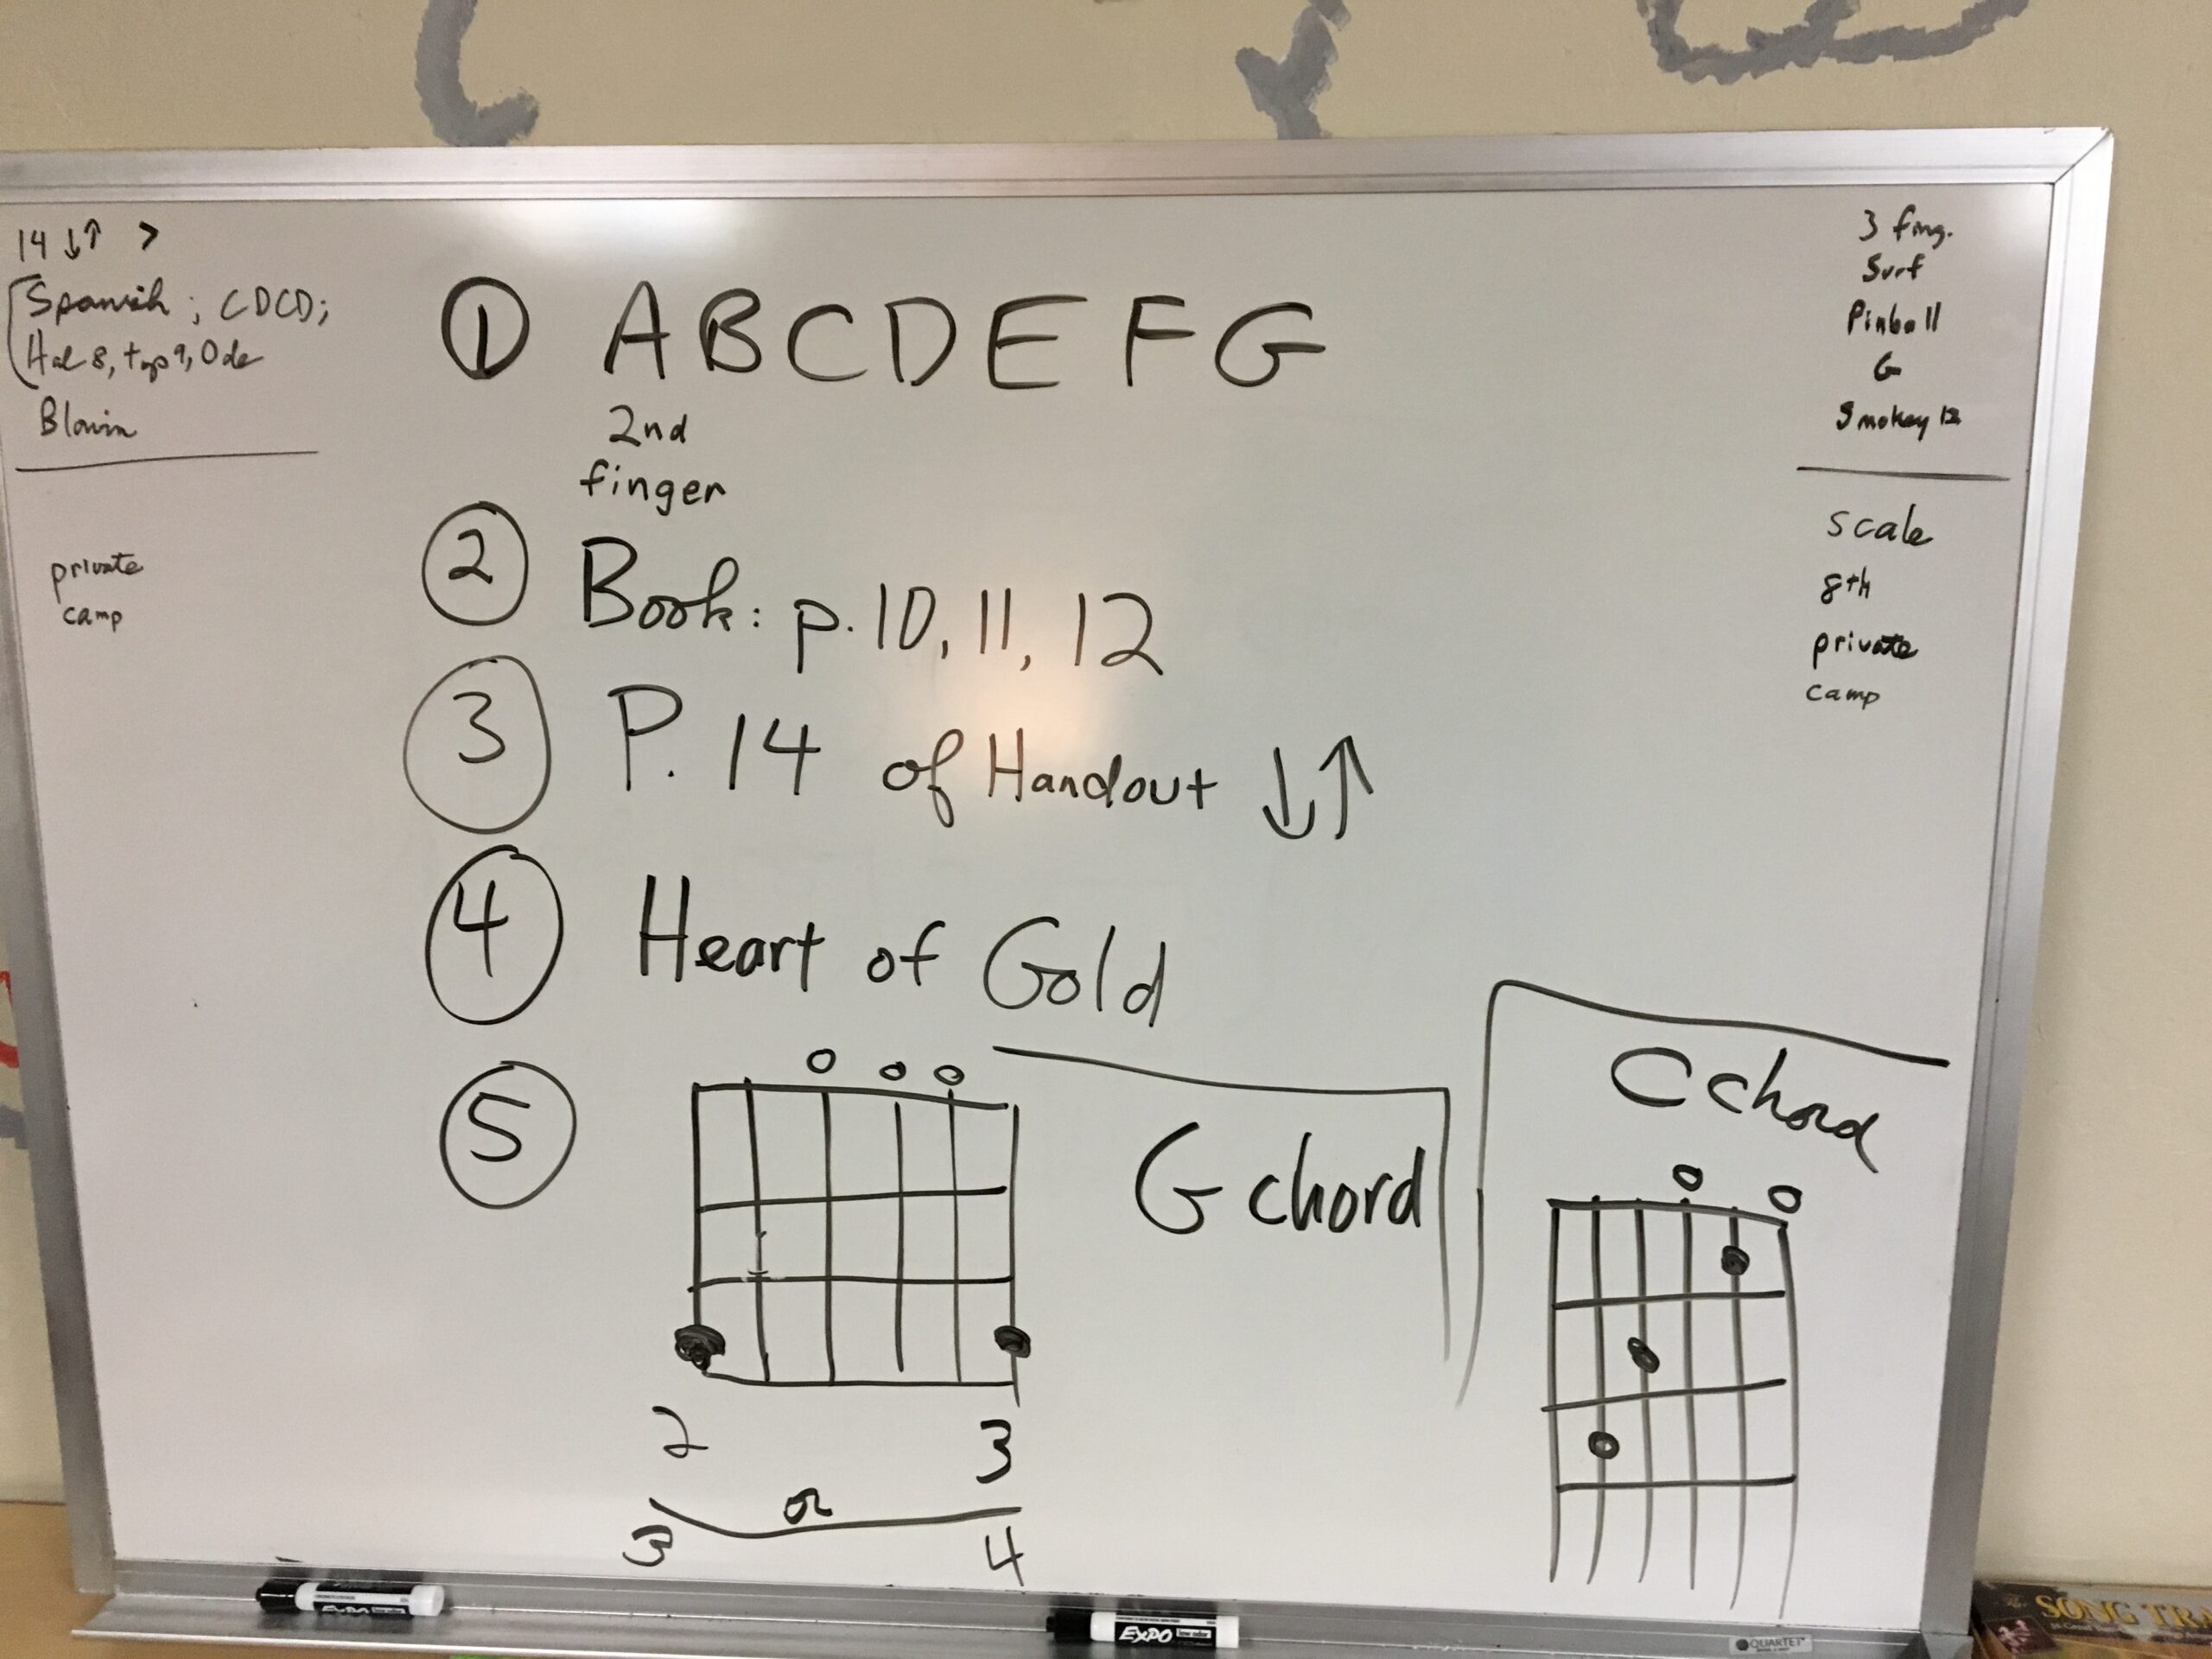 14 ↓↑ >
Spanish ; CDCD;
Hal 8, top 9, Ode
Blowin
private
camp
① ABCDEFG
2nd
finger
② Book: p. 10, 11, 12
③ P. 14 of Handout ↓↑
④ Heart of Gold
⑤
G chord
2 3
or
3 4
3 fing.
Surf
Pinball
G
Smokey 12
scale
8th
private
camp
C chord
EXPO low odor
EXPO low odor
QUARTET
SONG TR